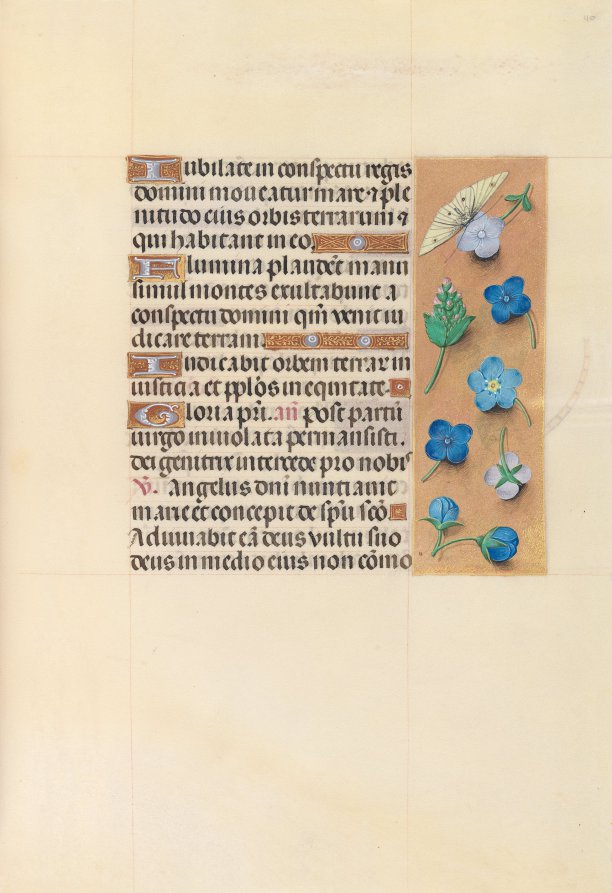 Iubilate in conspectu regis
domini moueatur mare ⁊ ple
nitudo eius orbis terrarum ⁊
qui habitant in eo
Flumina plaudēt manu
simul montes exultabunt a
conspectu domini qm̄ venit iu
dicare terram
Iudicabit orbem terrar in
iusticia et pplōs in equitate
Gloria pr̄i. an̄ post partū
uirgo inuiolata permansisti.
dei genitrix intercede pro nobis
V. Angelus dn̄i nuntiauit
marie et concepit de sp̄u scō
Adiuuabit eā deus vultu suo
deus in medio eius non cōmo
40